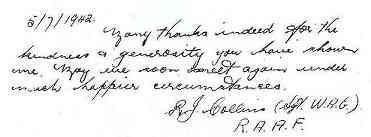 5/7/1942.
Many thanks indeed for the
kindness & generosity you have shown
me. May we soon meet again under
much happier circumstances.
R J Collins (Sgt. W.A.G.)
R.A.A.F.